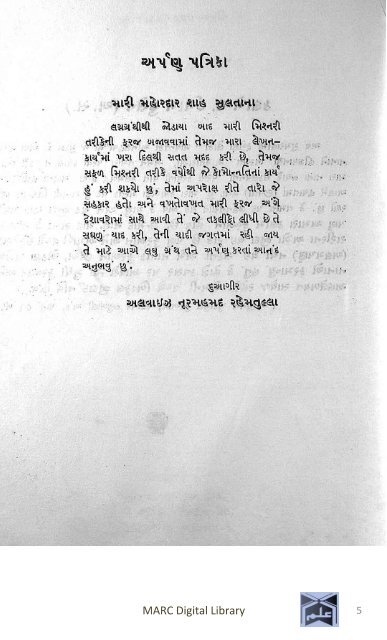 અર્પણ પત્રિકા
મારી મહોરદાર શાહ સુલતાના
લગ્નગ્રંથીથી જોડાયા બાદ મારી મિશ્નરી
તરીકેની ફરજ બજાવવામાં તેમજ મારા લેખન-
કાર્યમાં ખરા દિલથી સતત મદદ કરી છે, તેમજ
સફળ મિશ્નરી તરીકે વર્ષોથી જે કોમોન્નતિનાં કાર્ય
હું કરી શક્યો છું, તેમાં અપરોક્ષ રીતે તારો જે
સહકાર હતો અને વખતોવખત મારી ફરજ અંગે
દેશાવરોમાં સાથે આવી તેં જે તકલીફો લીધી છે તે
સઘળું યાદ કરી, તેની યાદી જગતમાં રહી જાય
તે માટે આજે લઘુ ગ્રંથ તને અર્પણ કરતાં આનંદ
અનુભવું છું.
દુઆગીર
અલવાઈઝ નૂરમહમદ રહેમતુલ્લા
MARC Digital Library
علم
5